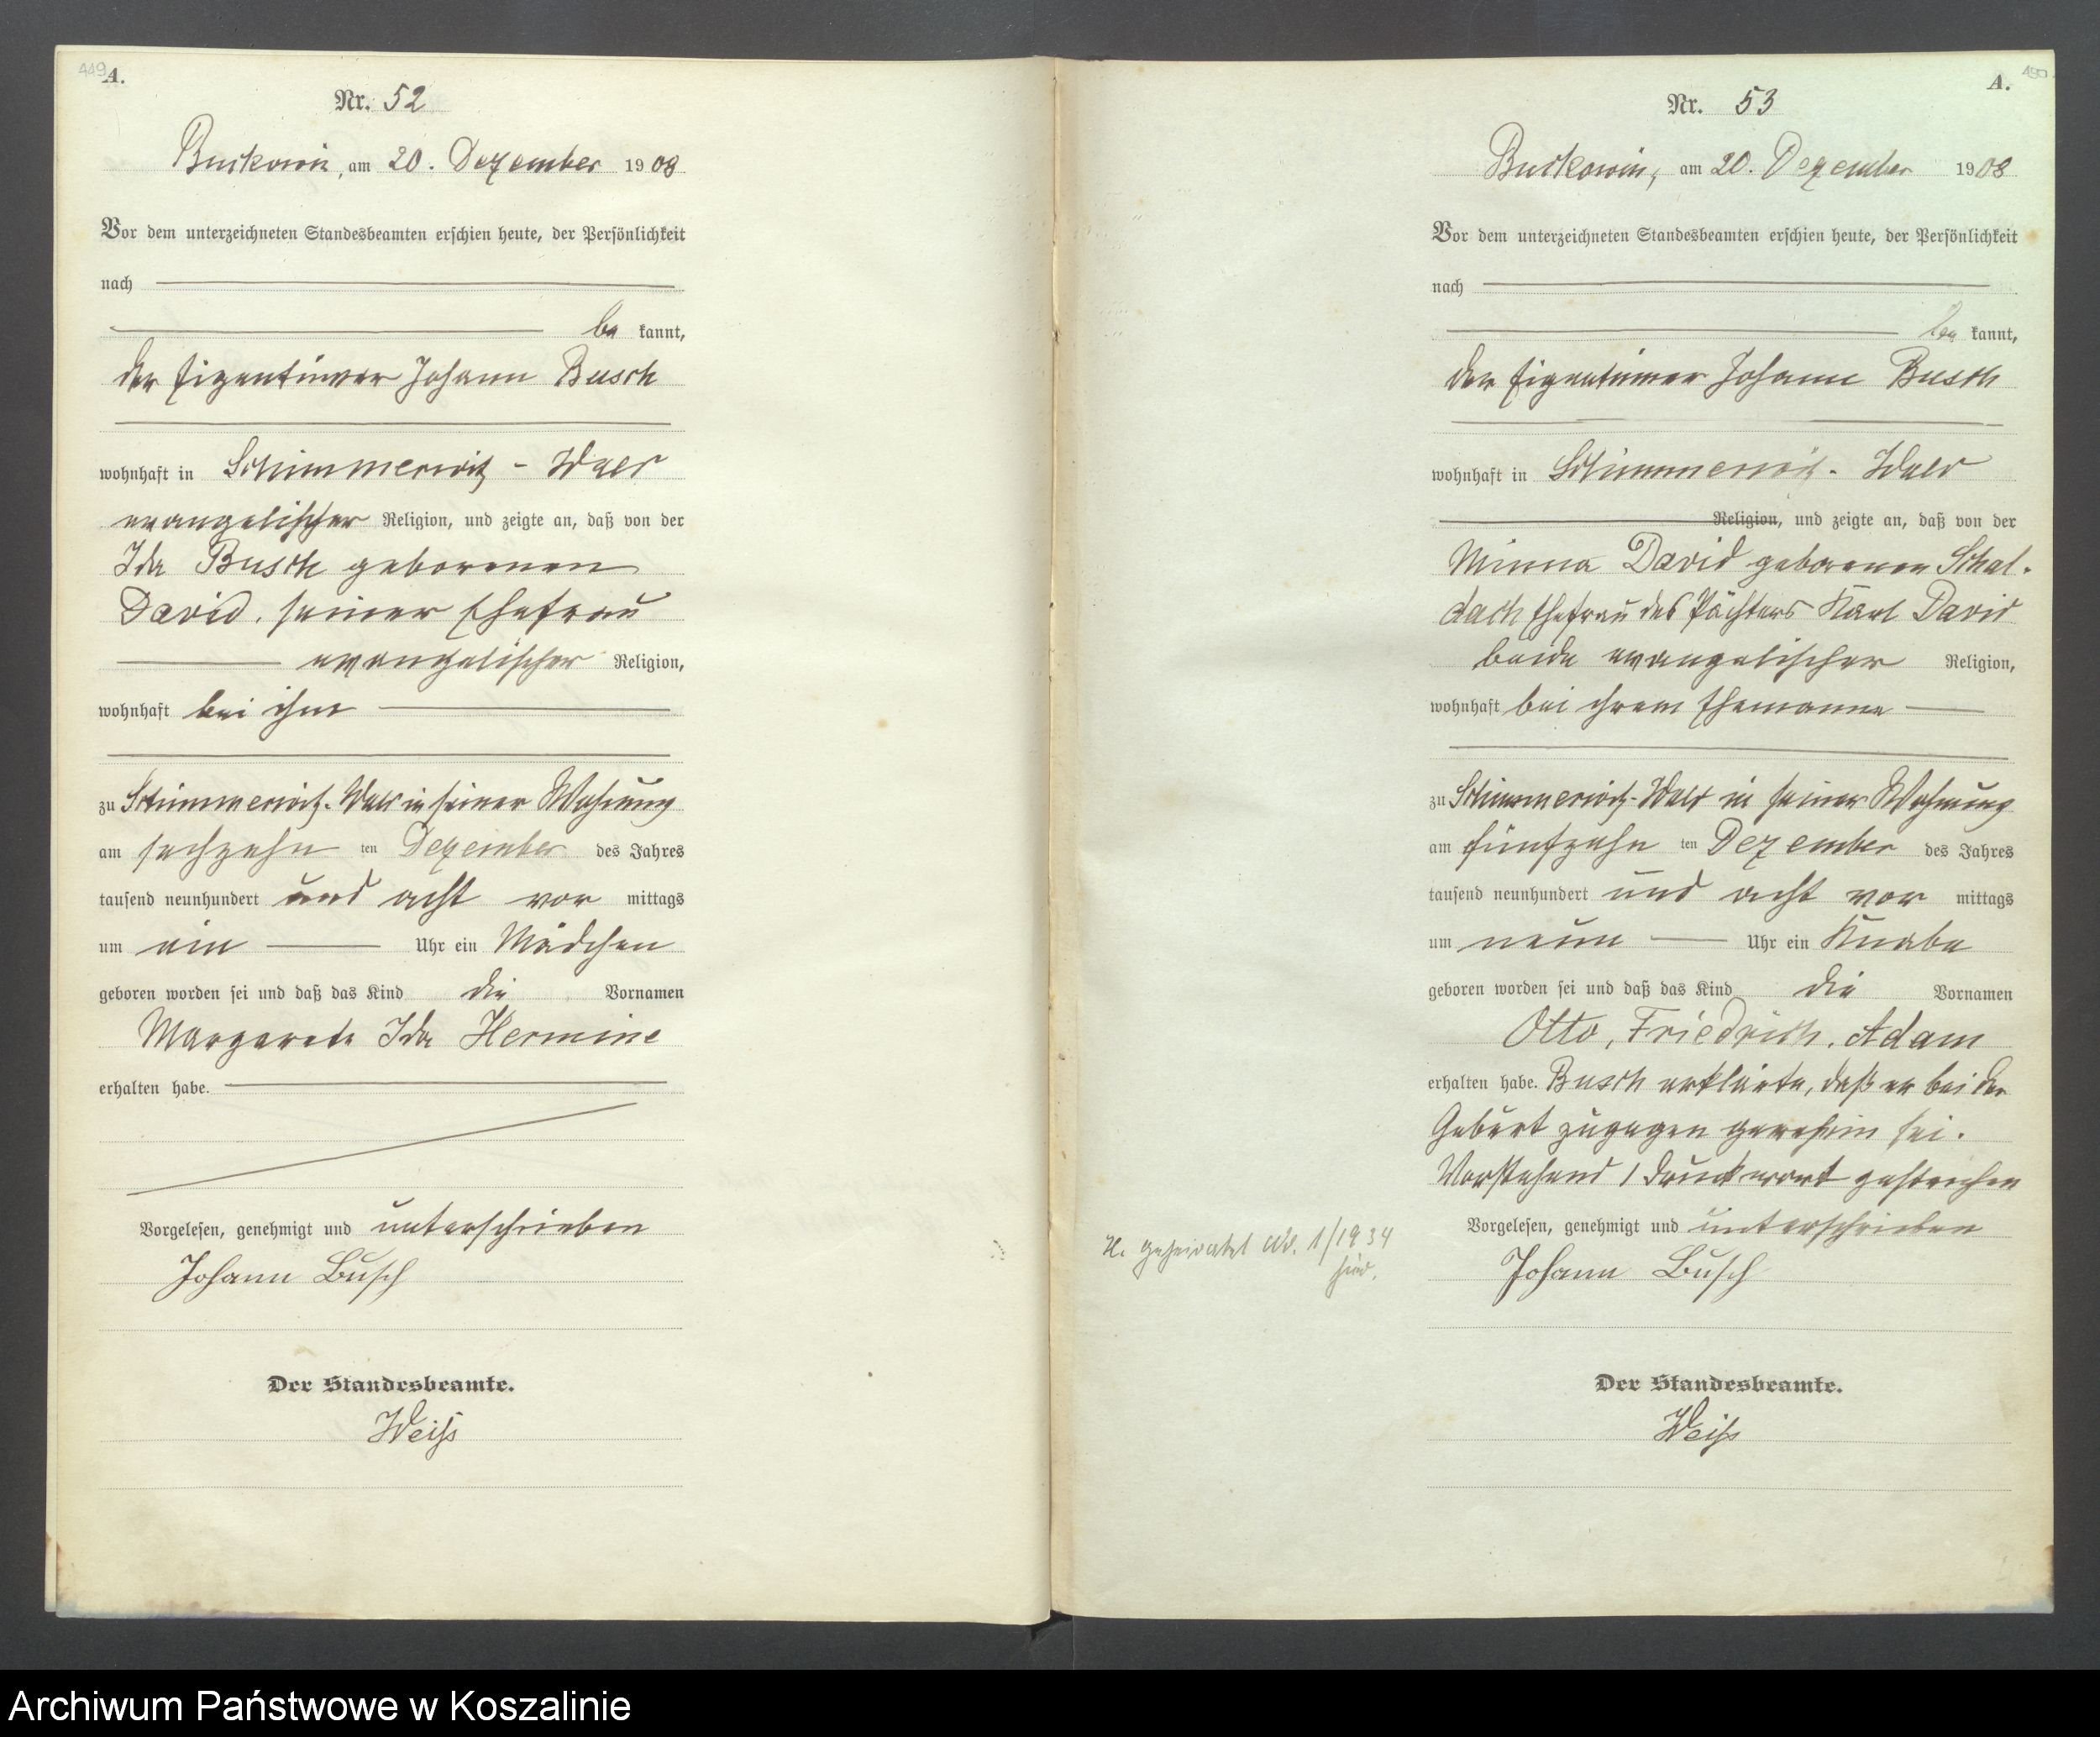 449
A.
Nr. 52
Buckowin, am 20. Dezember 1908
Vor dem unterzeichneten Standesbeamten erschien heute, der Persönlichkeit
nach
be kannt,
der Eigentümer Johann Busch
wohnhaft in Schimmerwitz-Wald
evangelischer Religion, und zeigte an, daß von der
Ida Busch geborenen
David, seiner Ehefrau
evangelischer Religion,
wohnhaft bei ihm
zu Schimmerwitz-Wald in seiner Wohnung
am sechzehn ten Dezember des Jahres
tausend neunhundert und acht vor mittags
um ein Uhr ein Mädchen
geboren worden sei und daß das Kind die Vornamen
Margarete Ida Hermine
erhalten habe.
Vorgelesen, genehmigt und unterschrieben
Johann Busch
Der Standesbeamte.
Weiß
A.
450
Nr. 53
Buckowin, am 20. Dezember 1908
Vor dem unterzeichneten Standesbeamten erschien heute, der Persönlichkeit
nach
be kannt,
der Eigentümer Johann Busch
wohnhaft in Schimmerwitz-Wald
Religion, und zeigte an, daß von der
Minna David geborenen Schal-
dach Ehefrau des Pächters Karl David
beide evangelischer Religion,
wohnhaft bei ihrem Ehemanne
zu Schimmerwitz-Wald in seiner Wohnung
am fünfzehn ten Dezember des Jahres
tausend neunhundert und acht vor mittags
um neun Uhr ein Knabe
geboren worden sei und daß das Kind die Vornamen
Otto, Friedrich, Adam
erhalten habe. Busch erklärte, daß er bei der
Geburt zugegen gewesen sei.
Vorstehend 1 Druckwort gestrichen
Vorgelesen, genehmigt und unterschrieben
Johann Busch
Der Standesbeamte.
Weiß
geheiratet 1/1934
Archiwum Państwowe w Koszalinie